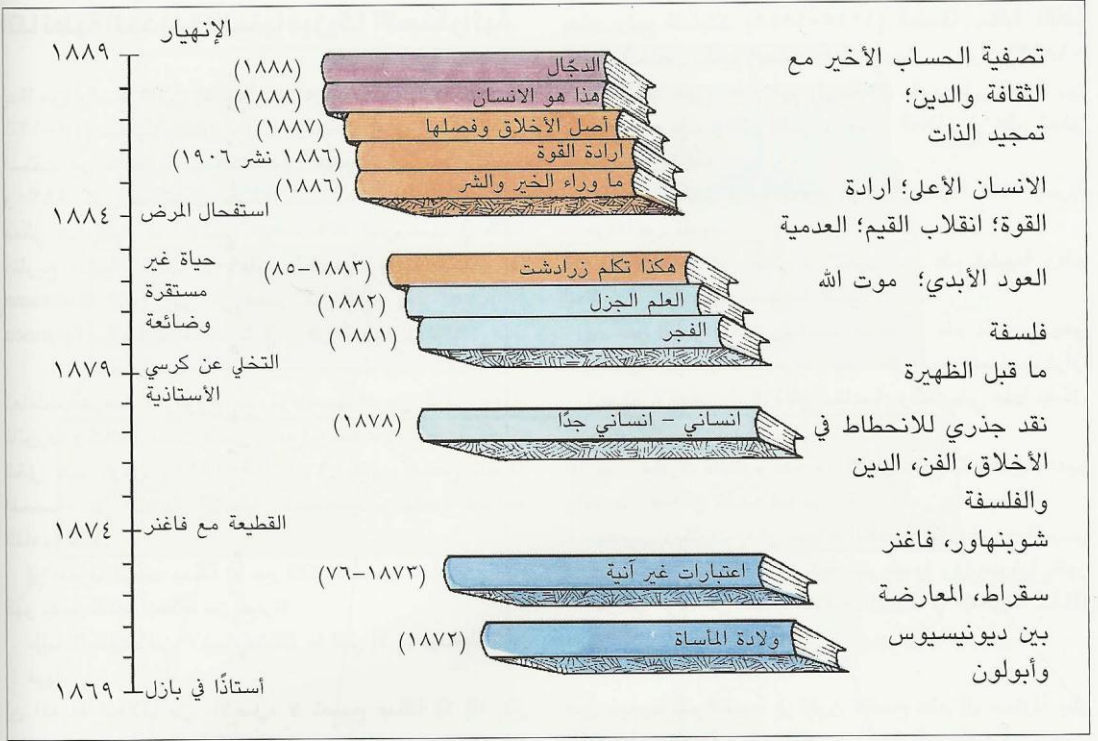 تصفية الحساب الأخير مع
الثقافة والدين؛
تمجيد الذات
الانسان الأعلى؛ ارادة
القوة؛ انقلاب القيم؛ العدمية
العود الأبدي؛ موت الله
فلسفة
ما قبل الظهيرة
نقد جذري للانحطاط في
الأخلاق، الفن، الدين
والفلسفة
شوبنهاور، فاغنر
سقراط، المعارضة
بين ديونيسيوس
وأبولون
الدجّال (١٨٨٨)
هذا هو الانسان (١٨٨٨)
أصل الأخلاق وفصلها (١٨٨٧)
ارادة القوة (١٨٨٦ نشر ١٩٠٦)
ما وراء الخير والشر (١٨٨٦)
هكذا تكلم زرادشت (١٨٨٣–٨٥)
العلم الجزل (١٨٨٢)
الفجر (١٨٨١)
انساني – انساني جدًا (١٨٧٨)
اعتبارات غير آنية (١٨٧٣–٧٦)
ولادة المأساة (١٨٧٢)
الإنهيار
١٨٨٩
استفحال المرض
١٨٨٤
حياة غير
مستقرة
وضائعة
التخلي عن كرسي
الأستاذية
١٨٧٩
القطيعة مع فاغنر
١٨٧٤
أستاذًا في بازل
١٨٦٩